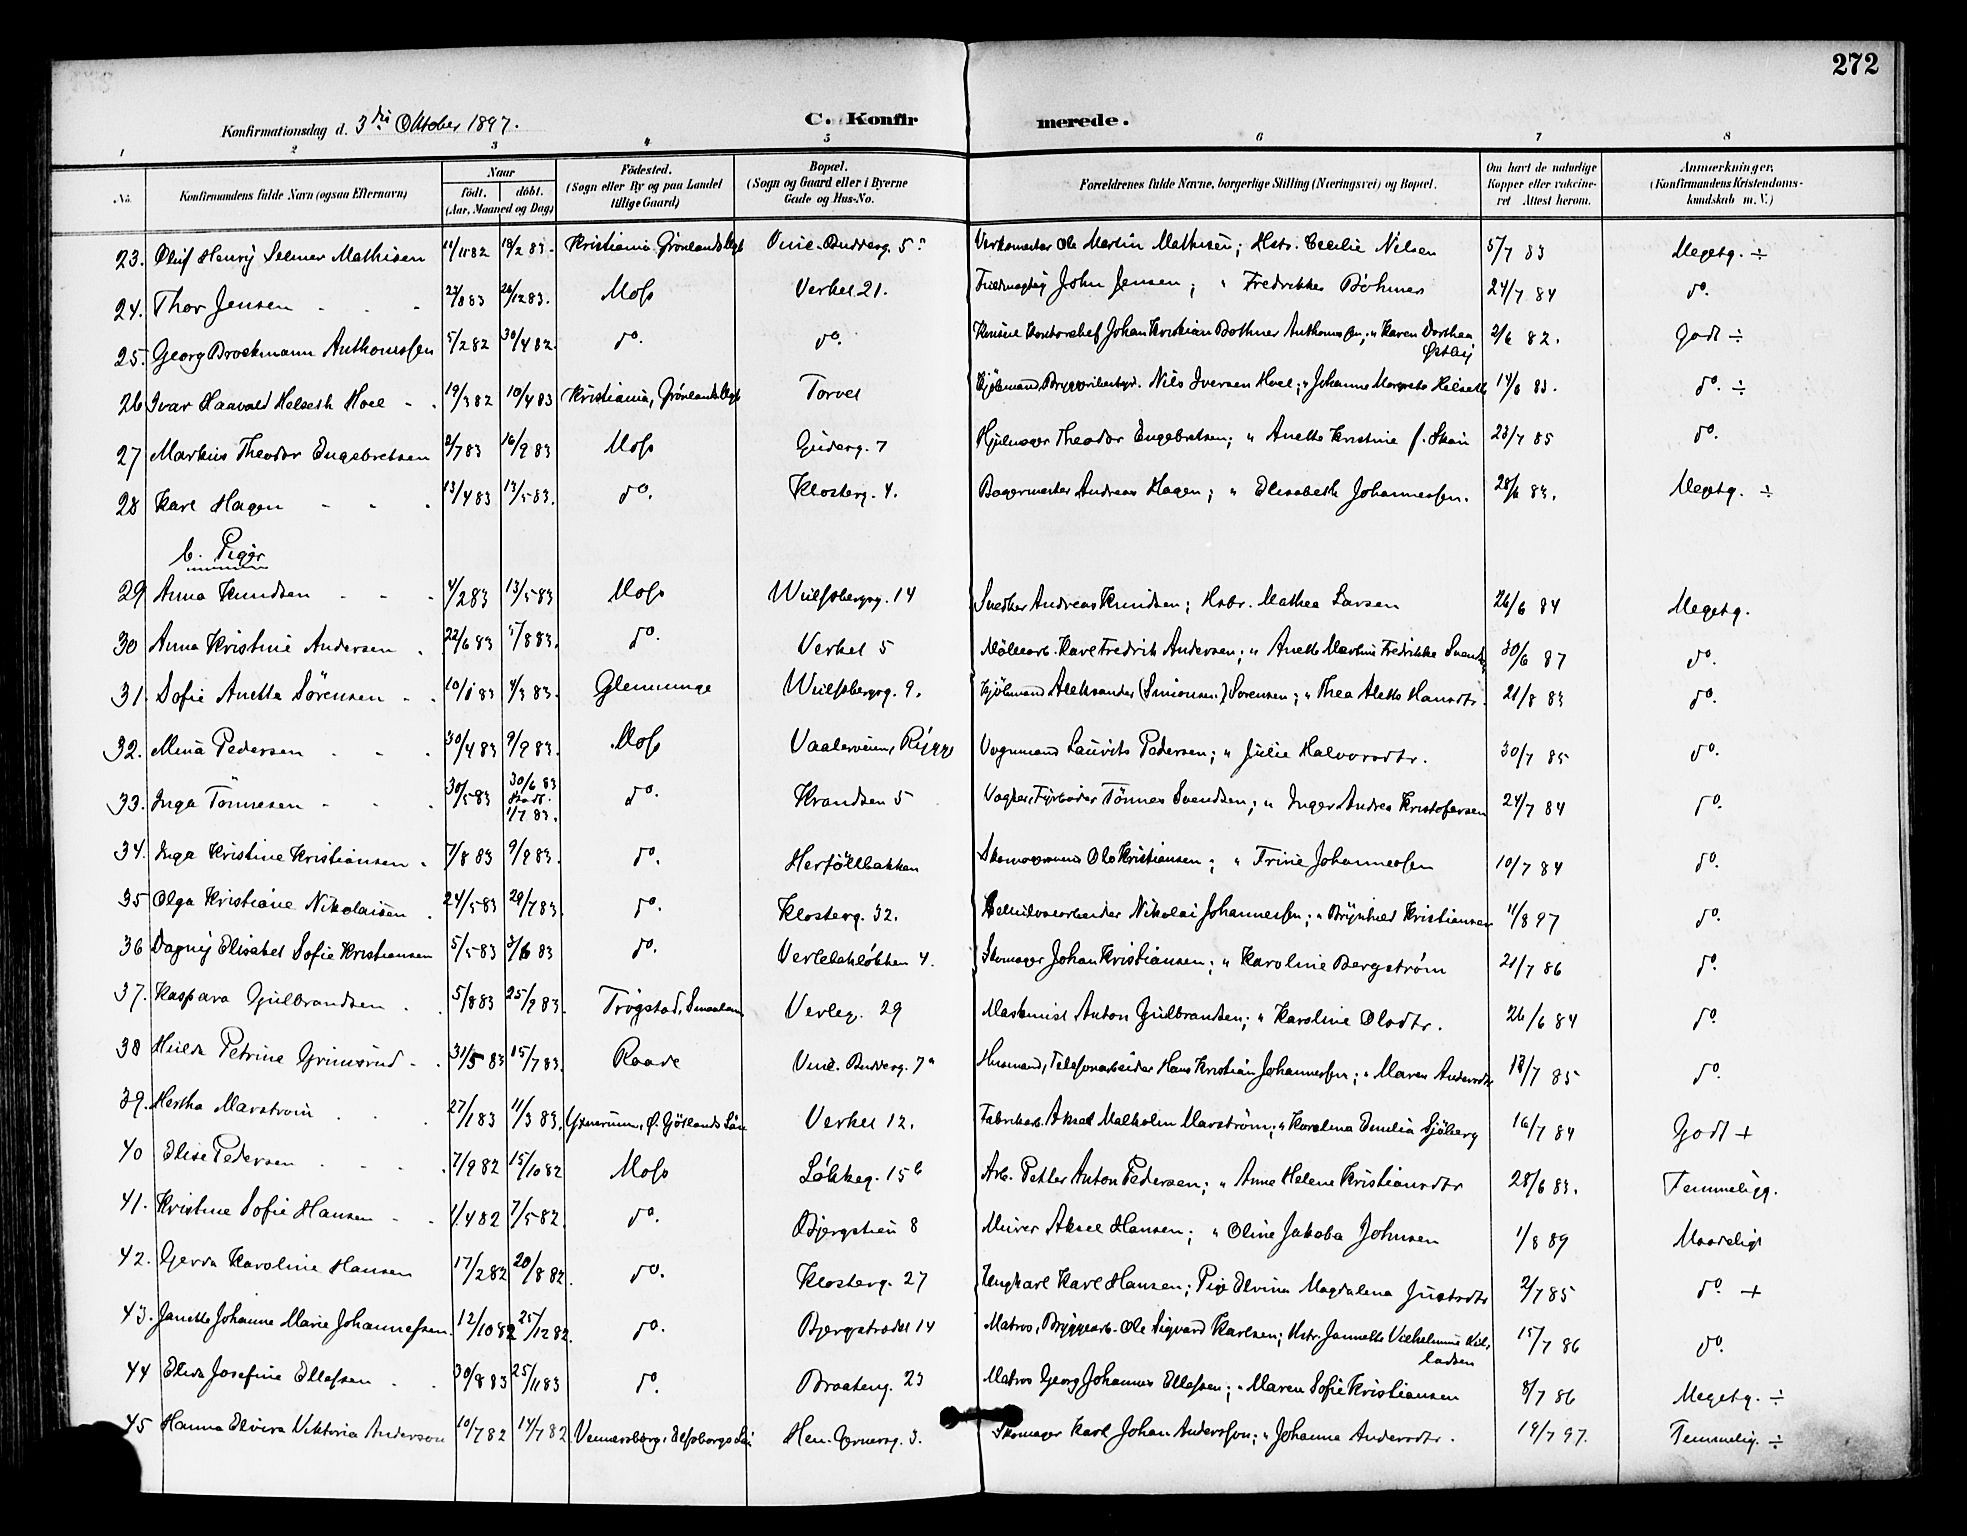 272
Konfirmationsdag d. 3die Oktober 1897. C. Konfirmerede.
1 2 3 4 5 6 7 8
No. Konfirmandens fulde Navn (ogsaa Efternavn) Naar født. døbt. (Aar, Maaned og Dag) Fødested. (Sogn eller By og paa Landet tillige Gaard) Bopæl. (Sogn og Gaard eller i Byerne Gade og Hus-No. Forældrenes fulde Navne, borgerlige Stilling (Næringsvei) og Bopæl. Om havt de naturlige Kopper eller vakcineret Attest herom. Anmerkninger, (Konfirmandens Kristendomskundskab m. V.)
23. Oluf Henry Selmer Mathisen 11/11 82 18/2 83. Kristiania. Grönlands Mgh Vinc. Budderg. 5 Verksmester Ole Martin Mathisen; Hstr. Cecilie Nilsen 5/7 83 Megetg. ÷
24. Thor Jensen 26/12 83. Moss Verket 21. John Jensen; " Fredrikke Böhmer 24/7 84 do.
25. Georg Brockmann Anthonissen 5/2 82 30/4 82. do. do. Johan Kristian Bothner Anthonissen; " Karen Dorthea Østby 2/6 82. Godt ÷
26 Ivar Haavald Helseth Hoel 19/3 82 10/4 83 Kristiania, Grönlands Mgh Torvet Kjöbmand, Nils Iversen Hoel; " Johanne Margrete Helseth 14/6 83. do. ÷
27 Markus Theodor Engebretsen 2/7 83 16/9 83 Moss Guderg. 7 Hjulmager Theodor Engebretsen; " Anette Kristine f. Skau 23/7 85 do.
28 Karl Hagen 13/4 83 13/5 83. do. Klosterg. 4. Bagermester Andreas Hagen; " Elisabeth Johannessen. 28/6 83. Megetg. ÷
b. Piger
29 Anna Knudsen 4/2 83 13/5 83 Moss Wulfsbergsg. 14 Snedker Andreas Knudsen; Hstr. Mathea Larsen 26/6 84 Megetg.
30 Anna Kristine Andersen 22/6 83 5/8 83. do. Verket 5 Möllearb. Karl Fredrik Andersen; " Anette Martine Fredrikke Svends. 30/6 87 do.
31. Sofie Anette Sörensen 10/1 83 4/3 83. Glemminge Wulfsbergsg. 9. Kjöbmand Aleksander (Simonsen) Sorensen; " Thea Alette Hansdtr. 21/8 83 do.
32. Mina Pedersen 30/4 83 9/9 83. Moss Vaalerveien, Rygge Vognmand Laurits Pedersen; " Julie Halvorsdtr. 30/7 85 do.
33. Inga Tönnesen 30/5 83 30/6 83 Stadf. 1/7 83. do. Krandsen 5 Fyrböder Tönnes Svendsen; " Inger Andrea Kristofersen 24/7 84 do.
34. Inga Kristine Kristiansen 7/8 83 9/9 83. do. Herföllbakken Skomagersvend Ole Kristiansen; " Trine Johannessen 10/7 84 do.
35 Olga Kristiane Nikolaisen 24/5 83 29/7 83. do. Klosterg. 32. Nikolai Johannessen; " Brynhild Kristiansen 11/8 97 do.
36 Dagny Elisabet Sofie Kristiansen 5/5 83 3/6 83 do. Verketsløkken 4. Skomager Johan Kristiansen; " Karoline Bergström 21/7 86 do.
37. Kaspara Gulbrandsen 5/8 83 25/9 83. Trögstad, Smaalenene Verleg. 29 Maskinist Anton Gulbrandsen; " Karoline Olsdtr. 26/6 84 do.
38 Hilda Petrine Grimsrud 31/5 83 15/7 83. Raade Vinc. Budderg. 7a Husmand, Telefonarbeider Hans Kristian Johannessen; " Maren Andersdtr 18/7 85 do.
39. Hertha Marström 27/1 83 11/3 83. Yxnerum, Ø. Götlands Län Verket 12. Fabrikarb. Aksel Malkolm Marström; " Karolina Emilia Sjöberg 16/7 84 Godt +
40 Elise Pedersen 7/9 82 15/10 82 Moss Løkkeg. 15b Arb. Petter Anton Pedersen; " Anne Helene Kristiansdtr 28/6 83. Temmeligg.
41. Kristine Sofie Hansen 1/4 82 7/5 82. do. Bjergstien 8 Murer Aksel Hansen; " Oline Jakoba Johnsen 1/8 89 Maadeligt
42. Gerda Karoline Hansen 17/2 82 20/8 82. do. Klosterg. 27 Ungkarl Karl Hansen; Pige Elvina Magdalena Justsdtr 2/7 85 do. +
43. Janette Johanne Marie Johannessen. 12/10 82 25/12 82. do. Bjergstrædet 14 Matros, Bryggearb. Ole Sigvard Karlsen; Hstr. Jannette Vilhelmine Killadsen 15/7 86 do.
44 Elida Josefine Ellefsen 30/8 83 25/11 83 do. Braateng. 23 Matros Georg Johannes Ellefsen; " Maren Sofie Kristiansen 8/7 86 Megetg. ÷
45 Hanna Elvira Viktoria Anderson 10/7 82 14/7 82 Vennersborg, Elfsborgs Län Hen. Gernersg. 3. Skomager Karl Johan Andersson; " Johanna Andersdtr. 19/7 97. Temmelig. ÷